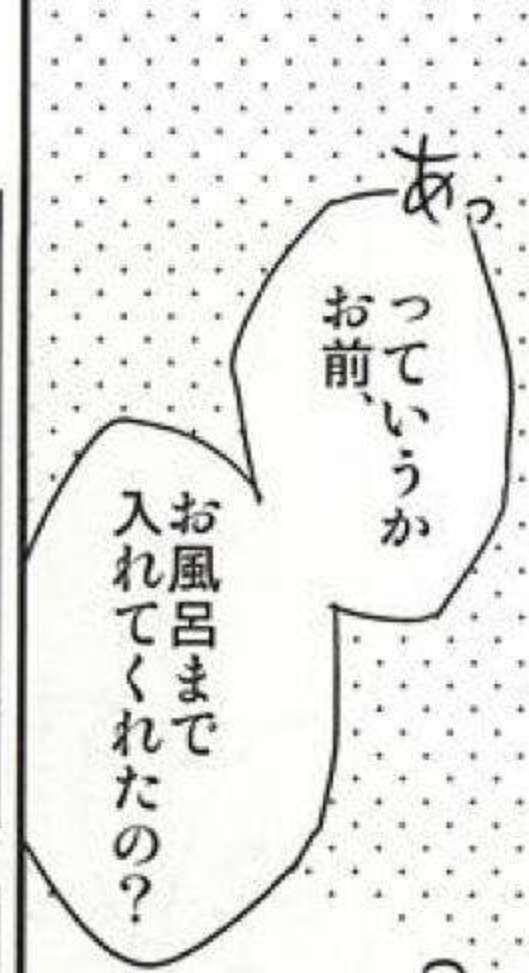 あっ
っていうか
お前、
お風呂まで
入れてくれたの？